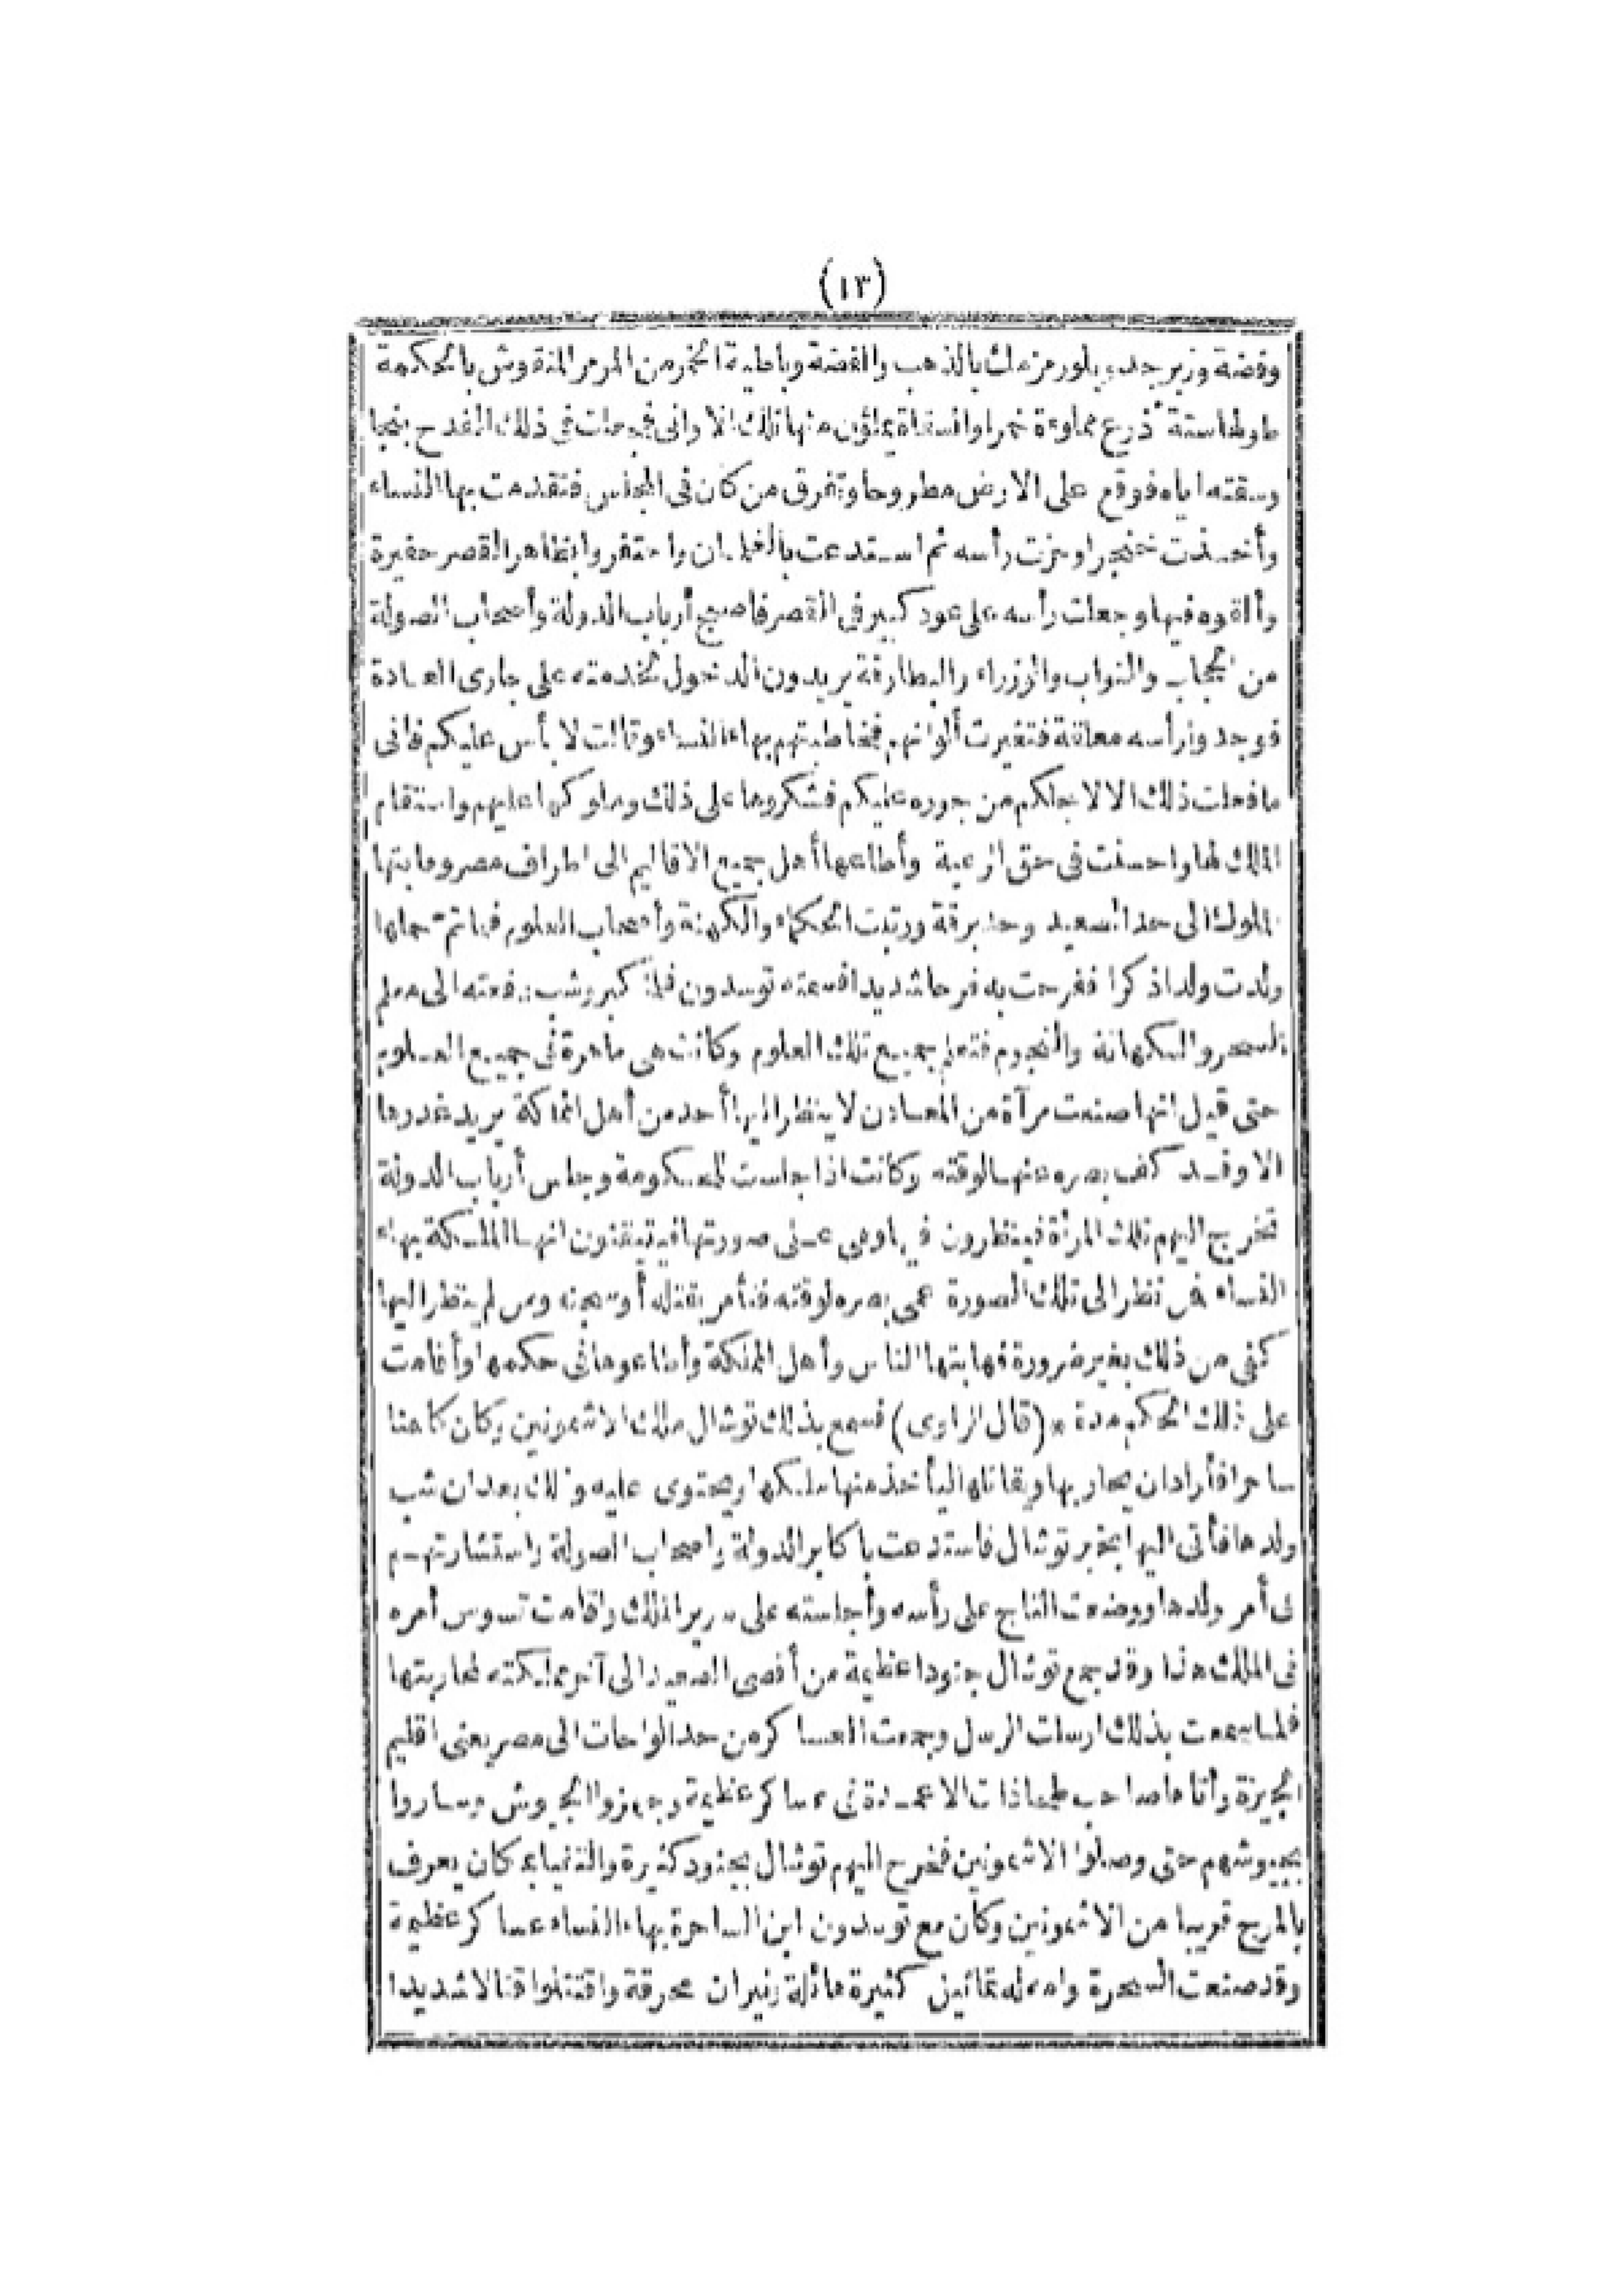 (١٣)
وفضة وزبرجد وبلور مزمك بالذهب والفضة وباطية الخمر من المرمر المنقوش بالحكمة
طولها ستة أذرع مملوءة خمرا والسقاة يملؤن منها تلك الاوانى فجعلت فى ذلك القدح بنجا
وسقته اياه فوقع على الارض مطروحا وتفرق من كان فى المجلس فتقدمت بها النساء
وأخذت خنجرا وحزت رأسه ثم استدعت بالغلمان واحتفروا بظاهر القصر حفيرة
وألقوه فيها وجعلت رأسه على عود كبير فى القصر فاصبح أرباب الدولة وأصحاب الصولة
من الحجاب والنواب والوزراء والبطارقة يريدون الدخول لخدمته على جارى العادة
فوجدوا رأسه معلقة فتغيرت ألوانهم فخاطبتهم بهاء النساء وقالت لا بأس عليكم فانى
ما فعلت ذلك الا لاجلكم من جوره عليكم فشكروها على ذلك وملوكها عليهم واستقام
الملك لها واحسنت فى حق الرعية وأطاعها أهل جميع الاقاليم الى اطراف مصر وهابتها
الملوك الى حد الصعيد وحد برقة ورتبت الحكماء والكهنة وأصحاب العلوم فلما تم حملها
ولدت ولدا ذكرا ففرحت به فرحا شديدا فسمته توسدون فلما كبر وشب دفعته الى معلم
السحر والكهانة والنجوم فتعلم جميع تلك العلوم وكانت هى ماهرة فى جميع العلوم
حتى قيل انها صنعت مرآة من المعادن لا ينظر اليها أحد من أهل المملكة يريد غدرها
الا وقد كف بصره عنها لوقته وكانت اذا جلست للحكومة وجلس أرباب الدولة
تخرج اليهم تلك المرأة فينظرون فيها وهى على صورتها فيتيقنون انها الملكة بهاء
النساء فمن نظر الى تلك الصورة عمى بصره لوقته فتأمر بقتله أو سجنه ومن لم ينظر اليها
كفى من ذلك بغير ضرورة فهابتها الناس وأهل المملكة وأطاعوها فى حكمها وأقامت
على ذلك الحكم مدة * (قال الراوى) فسمع بذلك توشال ملك الاشمونين وكان كاهنا
ساحرا فأراد ان يحاربها ويقاتلها ليأخذ منها ملكها ويحتوى عليه وذلك بعد ان شب
ولدها فأتى اليها بخبر توشال فاستدعت باكابر الدولة واصحاب الصولة واستشارتهم
فى أمر ولدها ووضعت التاج على رأسه وأجلسته على سرير الملك واقامت تسوس أمره
فى الملك هذا وقد جمع توشال جنودا عظيمة من أقصى الصعيد الى آخر مملكته لمحاربتها
فلما سمعت بذلك ارسلت الرسل وجمعت العساكر من حد الواحات الى مصر يعنى اقليم
الجيزة وأتاها صاحب طحا ذات الاعمدة فى عساكر عظيمة وجهزوا الجيوش وساروا
بجيوشهم حتى وصلوا الاشمونين فخرج اليهم توشال بجنود كثيرة والتقيا بمكان يعرف
بالمرج قريبا من الاشمونين وكان مع توسدون ابن الساحرة بهاء النساء عساكر عظيمة
وقد صنعت السحرة وامه له تماثيل كثيرة هائلة ونيران محرقة واقتتلوا قتالا شديدا